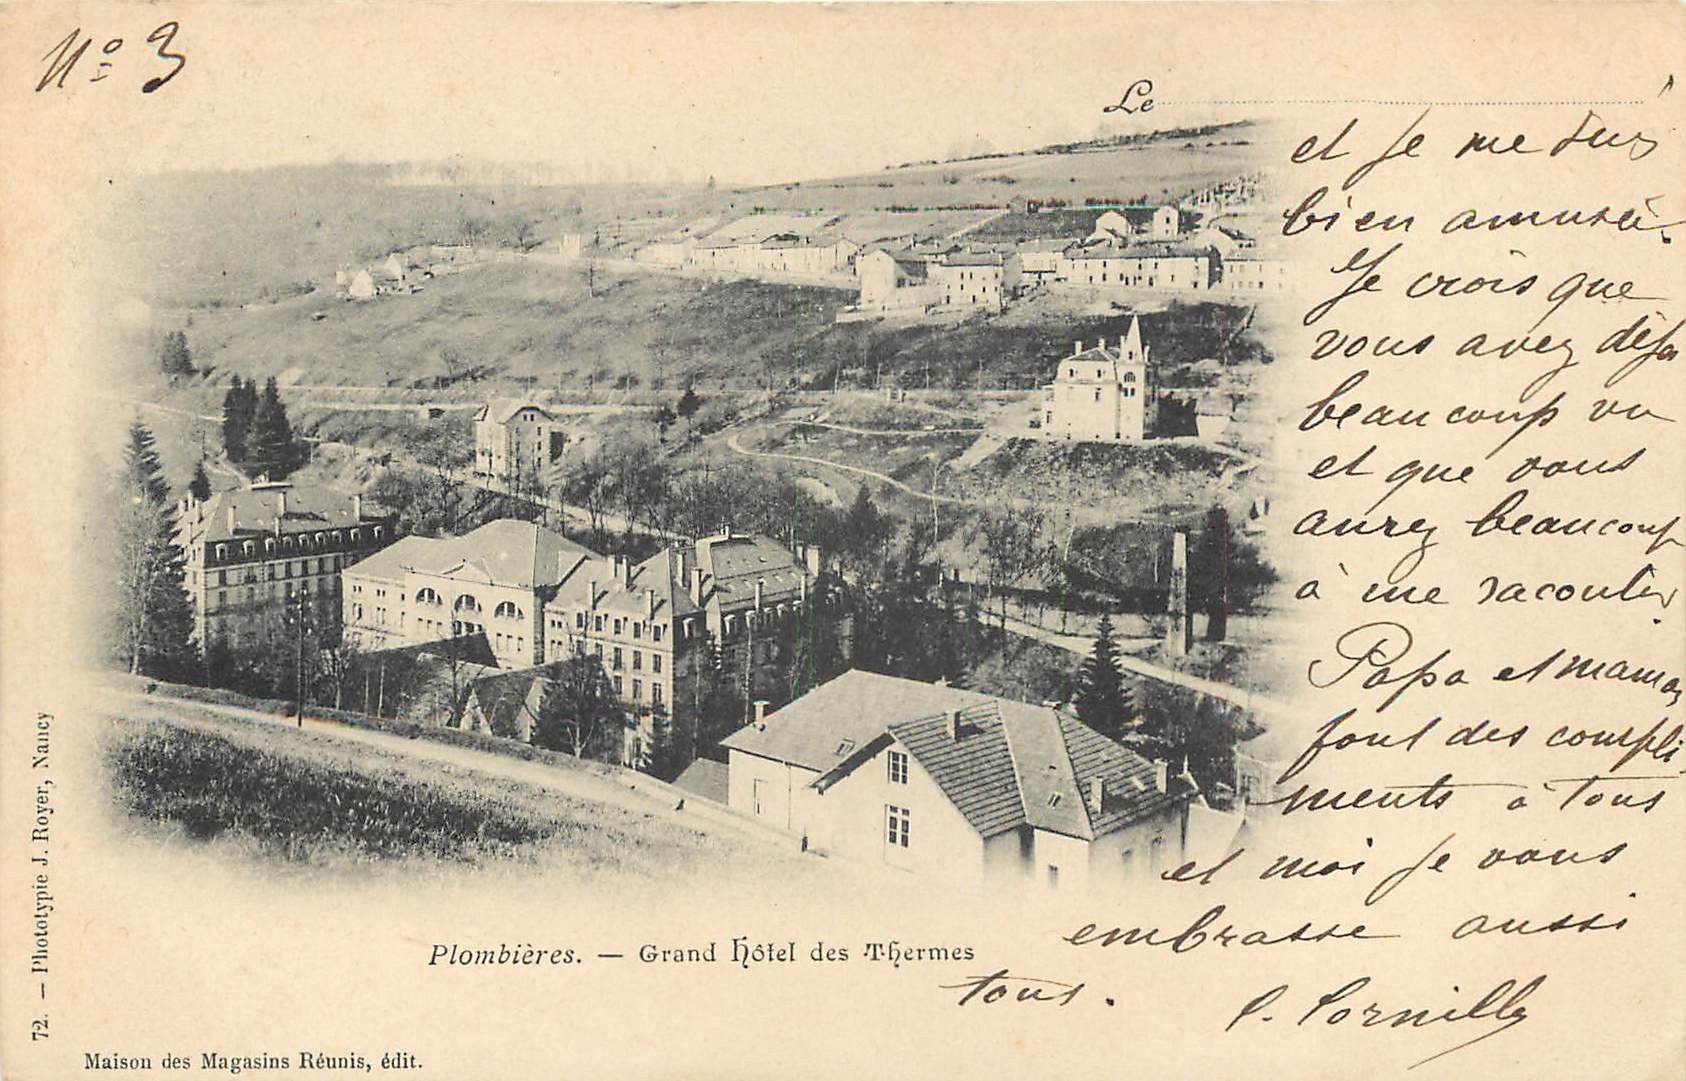 No 3
Le
et je me suis
bien amusée.
Je crois que
vous avez déja
beaucoup vu
et que vous
aurez beaucoup
à me raconter.
Papa et maman
font des compli
ments à tous
et moi je vous
embrasse aussi
tous.
Plombières. — Grand Hôtel des Thermes
72. — Phototypie J. Royer, Nancy
Maison des Magasins Réunis, édit.